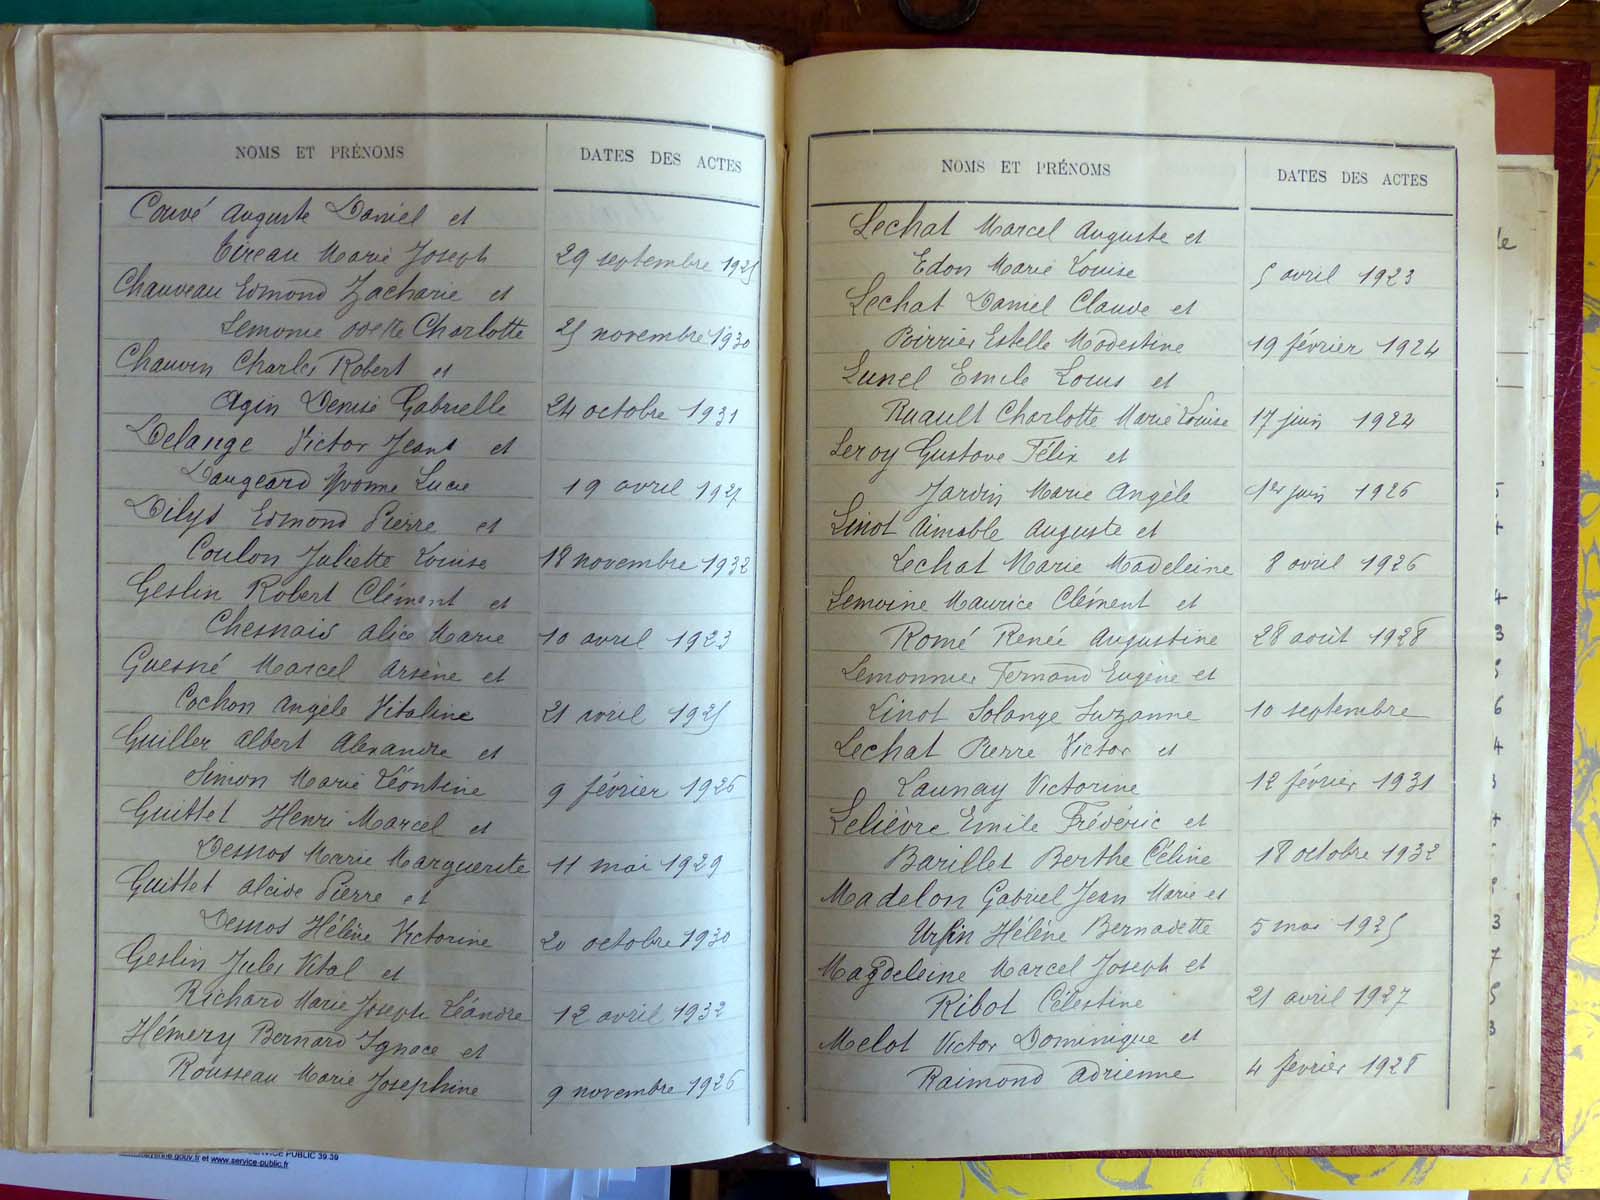 NOMS ET PRÉNOMS DATES DES ACTES
Couvé Auguste Daniel et
Tireau Marie Joseph 29 septembre 1925
Chauveau Edmond Zacharie et
Lemonie Odette Charlotte 25 novembre 1930
Chauvin Charles Robert et
Agin Denise Gabrielle 24 octobre 1931
Delange Victor Jean et
Daugeard Yvonne Lucie 19 avril 1927
Dilys Edmond Pierre et
Coulon Juliette Louise 18 novembre 1932
Geslin Robert Clément et
Chesnais Alice Marie 10 avril 1923
Guesné Marcel Arsène et
Cochon Angèle Vitaline 21 avril 1925
Guiller Albert Alexandre et
Simon Marie Léontine 9 février 1926
Guittet Henri Marcel et
Desnos Marie Marguerite 11 mai 1929
Guittet Alcide Pierre et
Desnos Hélène Victorine 20 octobre 1930
Geslin Jules Vital et
Richard Marie Joseph Léandre 12 avril 1932
Hémery Bernard Ignace et
Rousseau Marie Josephine 9 novembre 1926
NOMS ET PRÉNOMS DATES DES ACTES
Lechat Marcel Auguste et
Edon Marie Louise 5 avril 1923
Lechat Daniel Claude et
Poirrier Estelle Modestine 19 février 1924
Lunel Emile Louis et
Ruault Charlotte Marie Louise 17 juin 1924
Leroy Gustave Félix et
Jardin Marie Angèle 1er juin 1926
Linot Aimable Auguste et
Lechat Marie Madeleine 8 avril 1926
Lemoine Maurice Clément et
Romé Renée Augustine 28 août 1928
Lemonnier Fernand Eugène et
Linot Solange Suzanne 10 septembre
Lechat Pierre Victor et
Launay Victorine 12 février 1931
Lelièvre Emile Frédéric et
Barillet Berthe Céline 18 octobre 1932
Madelon Gabriel Jean Marie et
Urfin Hélène Bernadette 5 mai 1925
Magdeleine Marcel Joseph et
Ribot Célestine 21 avril 1927
Melot Victor Dominique et
Raimond Adrienne 4 février 1928
SERVICE PUBLIC 39 39
mayenne.gouv.fr et www.service-public.fr